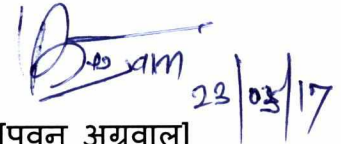 23/03/17
[पवन अग्रवाल]